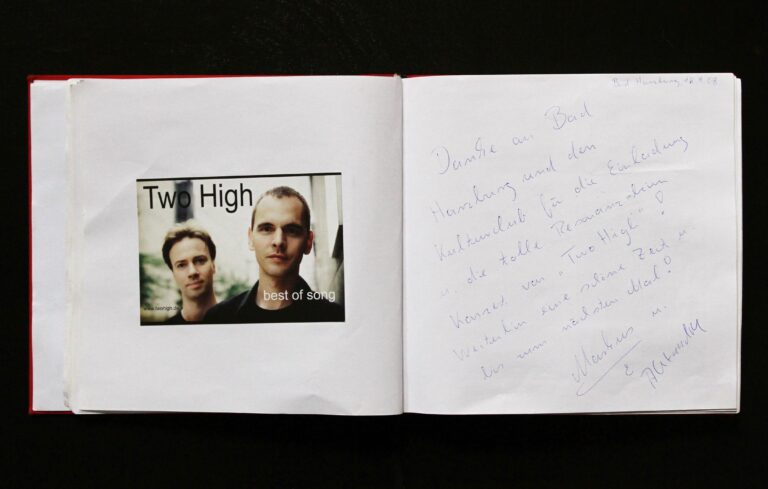 Two High
best of song
www.twohigh.de
Bad Harzburg,
Danke an Bad
Harzburg und den
Kulturclub für die Einladung
u. die tolle Resonanz beim
Konzert von "Two High"!
Weiterhin eine schöne Zeit u.
bis zum nächsten Mal!
Markus u.